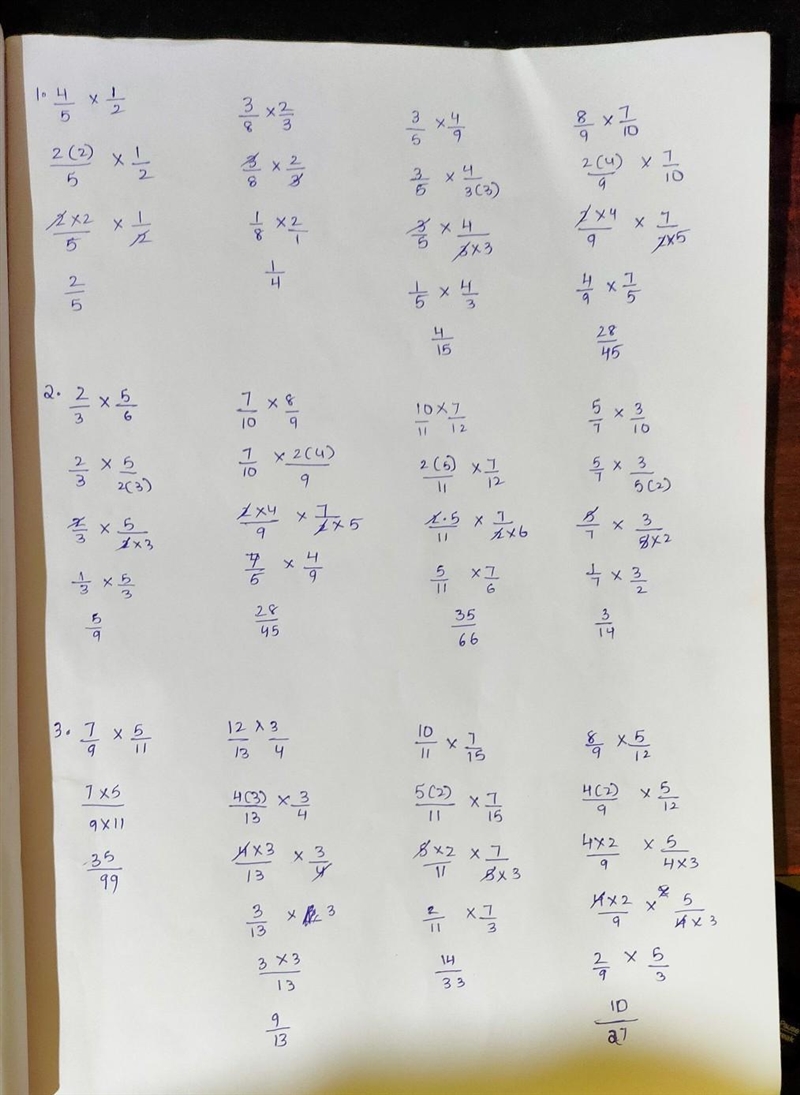 1. 4/5 × 1/2
2(2)/5 × 1/2
2×2/5 × 1/2
2/5
3/8 × 2/3
3/8 × 2/3
1/8 × 2/1
1/4
3/5 × 4/9
3/5 × 4/3(3)
3/5 × 4/3×3
1/5 × 4/3
4/15
8/9 × 7/10
2(4)/9 × 7/10
2×4/9 × 7/2×5
4/9 × 7/5
28/45
2. 2/3 × 5/6
2/3 × 5/2(3)
2/3 × 5/2×3
1/3 × 5/3
5/9
7/10 × 8/9
7/10 × 2(4)/9
2×4/9 × 7/2×5
7/5 × 4/9
28/45
10/11 × 7/12
2(5)/11 × 7/12
2·5/11 × 7/2×6
5/11 × 7/6
35/66
5/7 × 3/10
5/7 × 3/5(2)
5/7 × 3/5×2
1/7 × 3/2
3/14
3. 7/9 × 5/11
7×5/9×11
35/99
12/13 × 3/4
4(3)/13 × 3/4
4×3/13 × 3/4
3/13 × 3
3×3/13
9/13
10/11 × 7/15
5(2)/11 × 7/15
5×2/11 × 7/5×3
2/11 × 7/3
14/33
8/9 × 5/12
4(2)/9 × 5/12
4×2/9 × 5/4×3
4×2/9 × 5/4×3
2/9 × 5/3
10/27